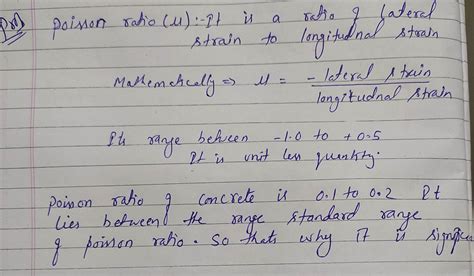 poisson ratio (μ):- It is a ratio of lateral
strain to longitudnal strain
Mathematically ⇒ μ = - lateral strain / longitudnal strain
Its range between -1.0 to +0.5
It is unit less quantity.
poison ratio of concrete is 0.1 to 0.2 It
lies between the range standard range
of poison ratio. So thats why it is